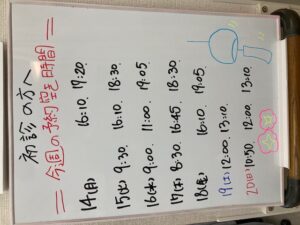 初診の方へ
= 今週の予約空き時間 =
14(月) 16:10. 17:20
15(火) 9:30. 16:10. 18:30
16(水) 9:00. 11:00. 19:05
17(木) 8:30. 16:45. 18:30
18(金) 16:10. 19:05
19(土) 12:00. 13:10
20(日) 10:50 12:00 13:10